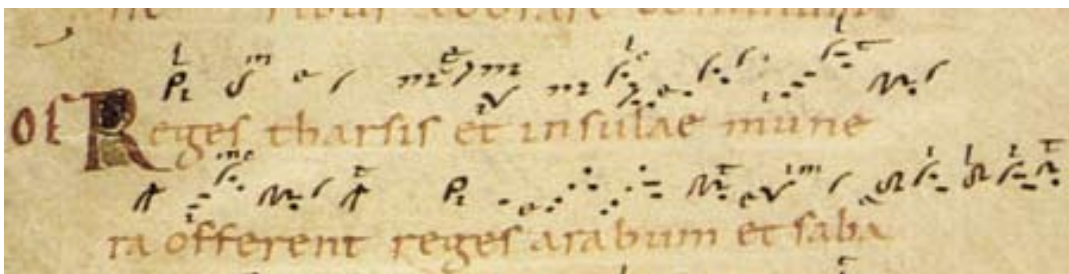 Of Reges tharsis et insulae mune
ra offerent reges arabum et saba